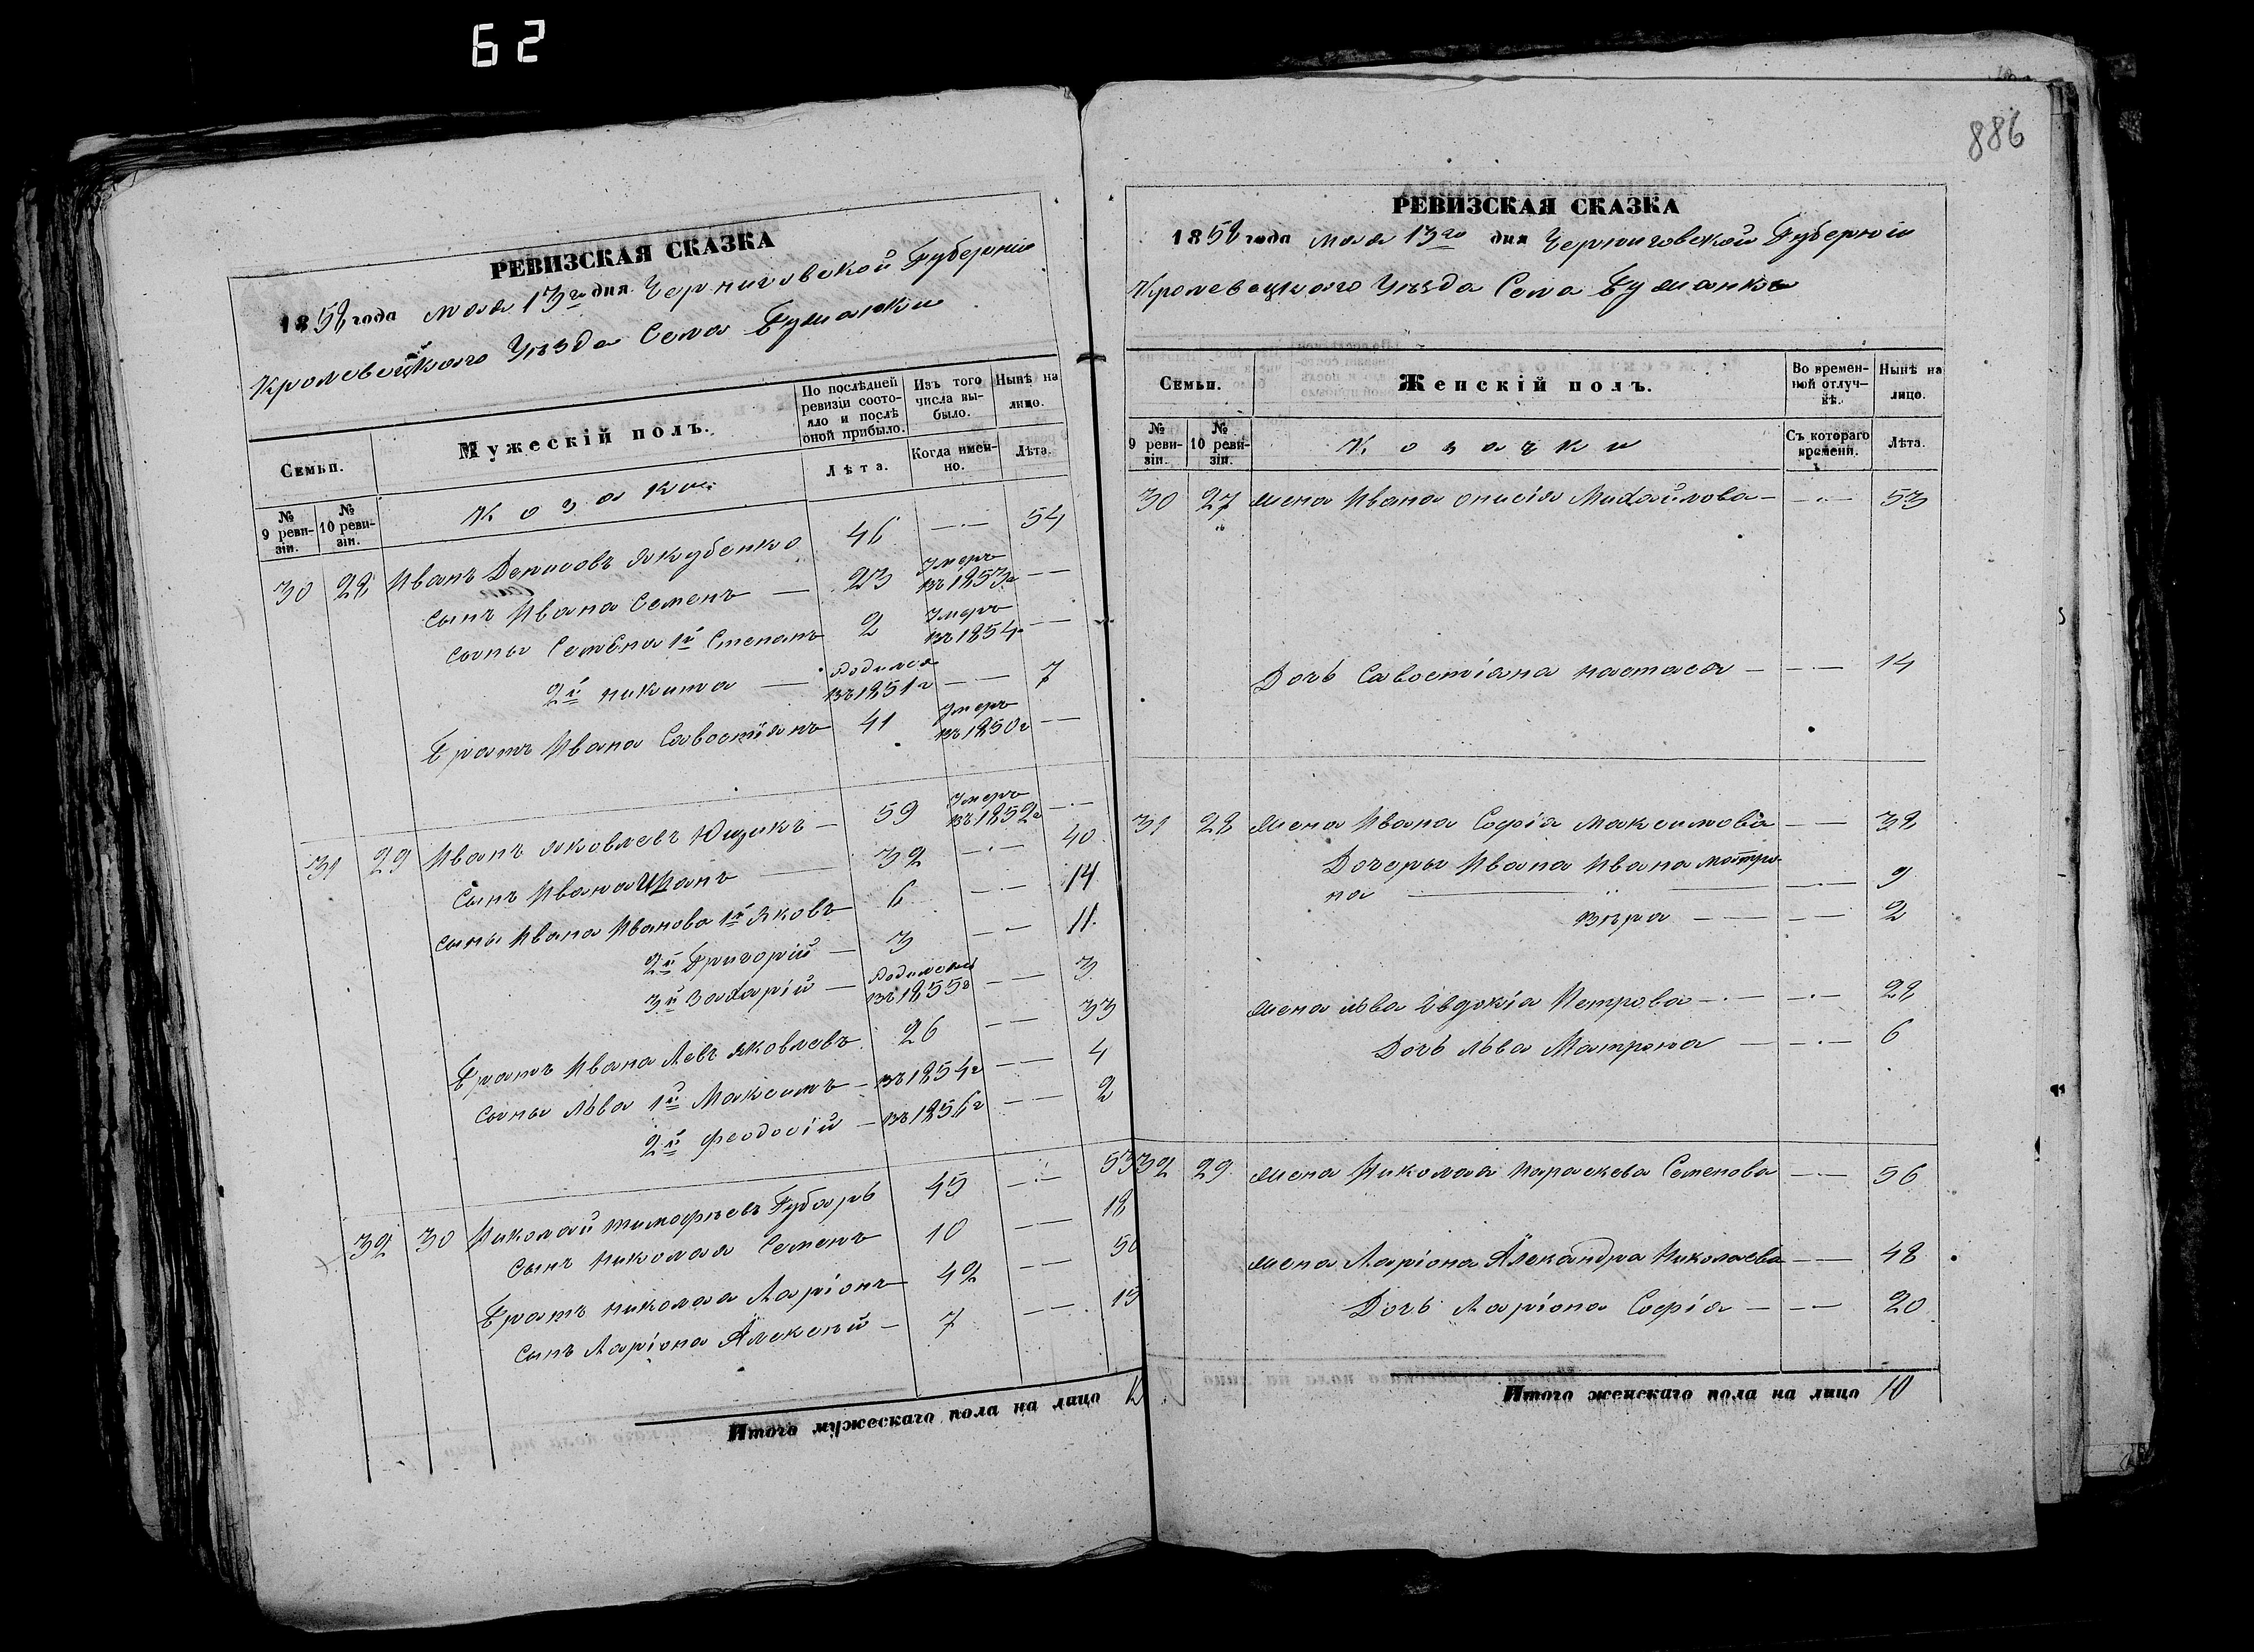 62
РЕВИЗСКАЯ СКАЗКА
1858 года мая 13го дня Черниговской Губерніи
Кролевецкаго Уѣзда Села Буманки
Семьи.
Мужескій полъ.
По послѣдней ревизіи состояло и послѣ оной прибыло.
Изъ того числа выбыло.
Нынѣ на лицо.
№ 9 ревизіи.
№ 10 ревизіи.
Козаки
Лѣта.
Когда именно.
Лѣта.
30 28 Иванъ Денисовъ Якубенко 46 — 54
Сынъ Ивана Семенъ — 23 Умеръ въ 1853г —
Сыны Семена 1й Степанъ 2 Умеръ въ 1854г —
2й Никита — родился въ 1851г — 7
Братъ Ивана Савостіянъ 41 Умеръ въ 1850г —
31 29 Иванъ Яковлевъ Ющикъ — 59 Умеръ въ 1852г —
Сынъ Ивана Иванъ — 32 — 40
Сыны Ивана Иванова 1й Яковъ 6 — 14
2й Григорій — 3 — 11.
3й Захарій — родился въ 1855г — 3
Братъ Ивана Левъ Яковлевъ 26 — 33
Сыны Льва 1й Максимъ — въ 1854г — 4
2й Феодосій — въ 1856г — 2
32 30 Николай Тимофѣевъ Губарь 45 — 53
Сынъ Николая Семенъ 10 — 18
Братъ Николая Ларіонъ 42 — 50
Сынъ Ларіона Алексѣй — 7 — 15
Итого мужескаго пола на лицо 12
886
РЕВИЗСКАЯ СКАЗКА
1858 года мая 13го дня Черниговской Губерніи
Кролевецкаго Уѣзда Села Буманки
Семьи.
Женскій полъ.
Во временной отлучкѣ.
Нынѣ на лицо.
№ 9 ревизіи.
№ 10 ревизіи.
Козачки
Съ котораго времени.
Лѣта.
30 27 жена Ивана Онисія Михайлова — — 53
Дочь Савостіана Настася — — 14
31 28 жена Ивана Софія Максимова — 38
Дочеры Ивана Ивана Матро-
на — — 9
Вѣра — — 2
жена Льва Евдокіа Петрова — — 28
Дочь Льва Матрона — — 6
32 29. жена Николая Параскева Семенова — 56
жена Ларіона Александра Николаева — 48
Дочь Ларіона Софія — — 20
Итого женскаго пола на лицо 10